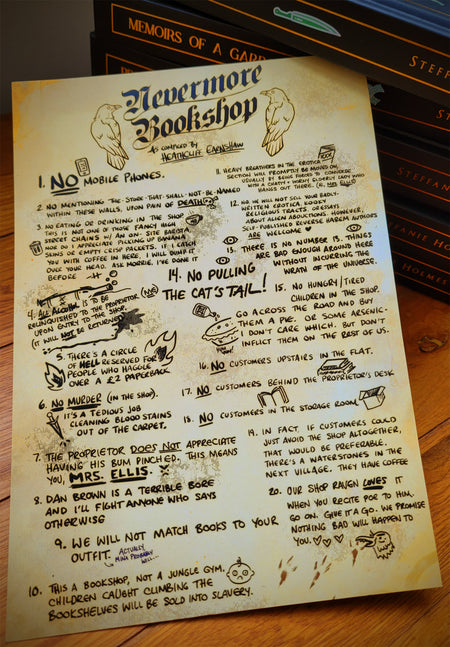 MEMOIRS OF A
STEFFA
Nevermore
Bookshop
AS COMPILED BY
HEATHCLIFF EARNSHAW
1. NO MOBILE PHONES.
2. NO MENTIONING THE-STORE-THAT-SHALL-NOT-BE-NAMED
WITHIN THESE WALLS, UPON PAIN OF DEATH
3. NO EATING OR DRINKING IN THE SHOP
THIS IS NOT ONE OF THOSE FANCY HIGH
STREET CHAINS WITH AN ON-SITE BARISTA
NOR DO I APPRECIATE PICKING UP BANANA
SKINS OR EMPTY CRISP PACKETS. IF I CATCH
YOU WITH COFFEE IN HERE, I WILL DUMP IT
OVER YOUR HEAD. ASK MORRIE, I'VE DONE IT
BEFORE. —H
4. ALL ALCOHOL IS TO BE
RELINQUISHED TO THE PROPRIETOR (ME)
UPON ENTRY TO THE SHOP.
(IT WILL NOT BE RETURNED)
5. THERE'S A CIRCLE
OF HELL RESERVED FOR
PEOPLE WHO HAGGLE
OVER A £2 PAPERBACK
6. NO MURDER (IN THE SHOP).
IT'S A TEDIOUS JOB
CLEANING BLOOD STAINS
OUT OF THE CARPET.
7. THE PROPRIETOR DOES NOT APPRECIATE
HAVING HIS BUM PINCHED. THIS MEANS
YOU, MRS. ELLIS. X
8. DAN BROWN IS A TERRIBLE BORE
AND I'LL FIGHT ANYONE WHO SAYS
OTHERWISE
9. WE WILL NOT MATCH BOOKS TO YOUR
OUTFIT.
ACTUALLY
MINA PROBABLY
WILL
10. THIS A BOOKSHOP, NOT A JUNGLE GYM.
CHILDREN CAUGHT CLIMBING THE
BOOKSHELVES WILL BE SOLD INTO SLAVERY.
11. HEAVY BREATHERS IN THE EROTICA
SECTION WILL PROMPTLY BE MOVED ON,
USUALLY BY BEING FORCED TO CONVERSE
WITH A CHATTY + WORDY ELDERLY LADY WHO
HANGS OUT THERE. (HI, MRS ELLIS)
12. NO, WE WILL NOT SELL YOUR BADLY-
WRITTEN EROTICA, KOOKY
RELIGIOUS TRACTS, OR ESSAYS
ABOUT ALIEN ABDUCTIONS. HOWEVER,
SELF-PUBLISHED REVERSE HAREM AUTHORS
ARE WELCOME
13. THERE IS NO NUMBER 13. THINGS
ARE BAD ENOUGH AROUND HERE
WITHOUT INCURRING THE
WRATH OF THE UNIVERSE.
14. NO PULLING
THE CAT'S TAIL!
15. NO HUNGRY/TIRED
CHILDREN IN THE SHOP.
GO ACROSS THE ROAD AND BUY
THEM A PIE. OR SOME ARSENIC-
I DON'T CARE WHICH. BUT DON'T
INFLICT THEM ON THE REST OF US.
16. NO CUSTOMERS UPSTAIRS IN THE FLAT.
17. NO CUSTOMERS BEHIND THE PROPRIETOR'S DESK
18. NO CUSTOMERS IN THE STORAGE ROOM
19. IN FACT, IF CUSTOMERS COULD
JUST AVOID THE SHOP ALTOGETHER,
THAT WOULD BE PREFERABLE.
THERE'S A WATERSTONES IN THE
NEXT VILLAGE. THEY HAVE COFFEE
20. OUR SHOP RAVEN LOVES IT
WHEN YOU RECITE POE TO HIM.
GO ON. GIVE IT A GO. WE PROMISE
NOTHING BAD WILL HAPPEN TO
YOU. ♡♡♡
STEFF
HOLMES